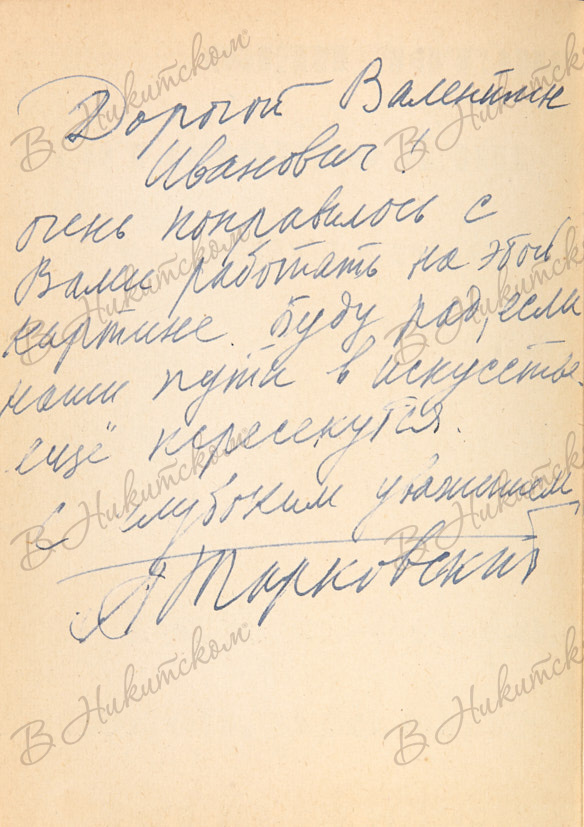 Дорогой Валентин
Иванович!
очень понравилось с
Вами работать на этой
картине буду рад, если
наши пути в искусстве
ещё пересекутся.
С глубоким уважением
А Тарковский
В Никитском
В Никитском
В Никитском
В Никитском
В Никитском
В Никитском
В Никитском
В Никитском